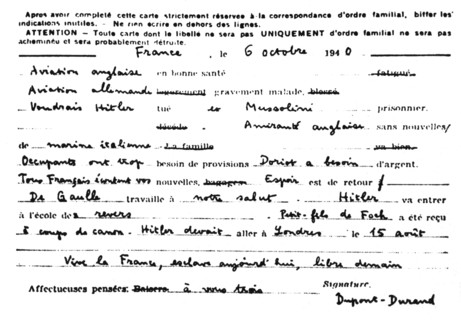 Après avoir complété cette carte strictement réservée à la correspondance d'ordre familial, biffer les
indications inutiles. - Ne rien écrire en dehors des lignes.
ATTENTION - Toute carte dont le libellé ne sera pas UNIQUEMENT d'ordre familial ne sera pas
acheminée et sera probablement détruite.
France , le 6 octobre 1940
Aviation anglaise en bonne santé fatigué
Aviation allemande légèrement gravement malade, blessé
Voudrais Hitler tué et Mussolini prisonnier.
décédé Amirauté anglaise sans nouvelles
de marine italienne La famille va bien
Occupants ont trop besoin de provisions Doriot a besoin d'argent.
Tous Français écoutent vos nouvelles, bagages Espoir est de retour
De Gaulle travaille à notre salut. Hitler va entrer
à l'école des revers Petit-fils de Foch a été reçu
à coups de canon. Hitler devait aller à Londres le 15 août
Vive la France, esclave aujourd'hui, libre demain
Affectueuses pensées. Baisers à vous trois Signature.
Dupont-Durand